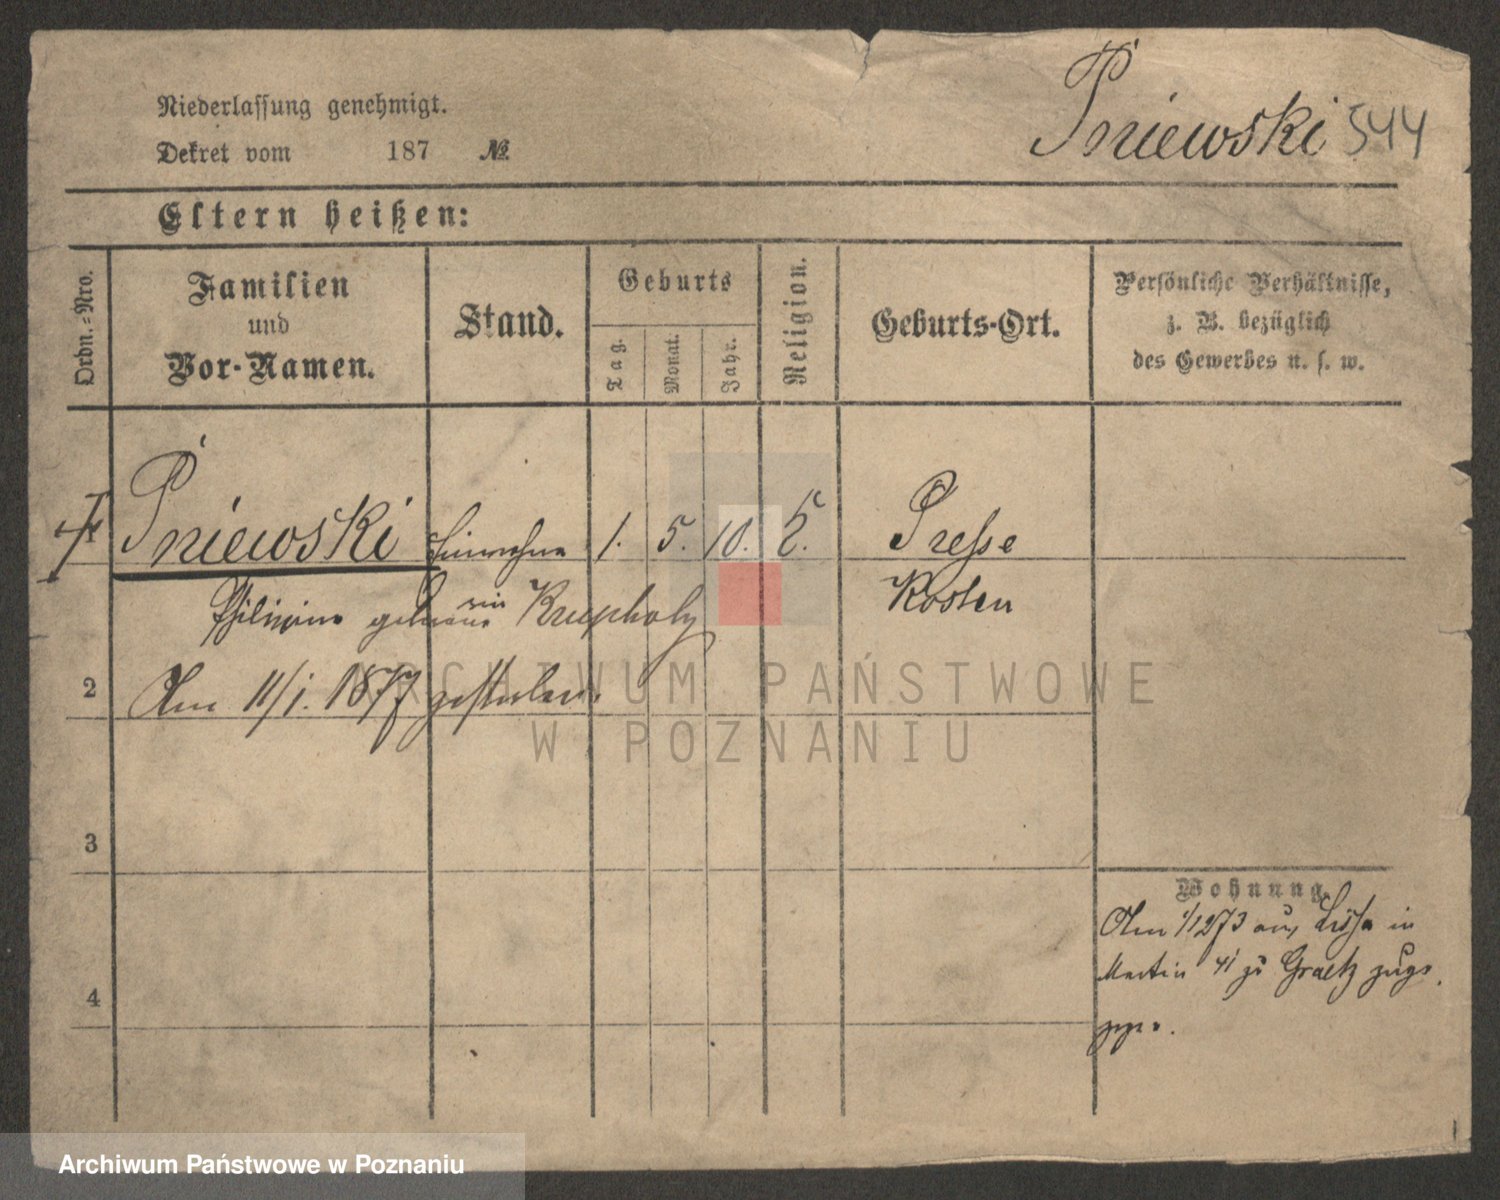 Niederlassung genehmigt.
Pniewski 544
Dekret vom 187 №.
Eltern heißen:
Ordn.-Nro.
Familien
und
Vor-Namen.
Stand.
Geburts
Tag.
Monat.
Jahr.
Religion.
Geburts-Ort.
Persönliche Verhältnisse,
z. B. bezüglich
des Gewerbes u. s. w.
Pniewski 1. 5. 10.
Kosten
2 Am 11/1. 1877 gestorben.
3
4
Wohnung.
Am 1/1273 aus Lissa in
Martin 41 zu Graetz
ARCHIWUM PAŃSTWOWE
W POZNANIU
Archiwum Państwowe w Poznaniu